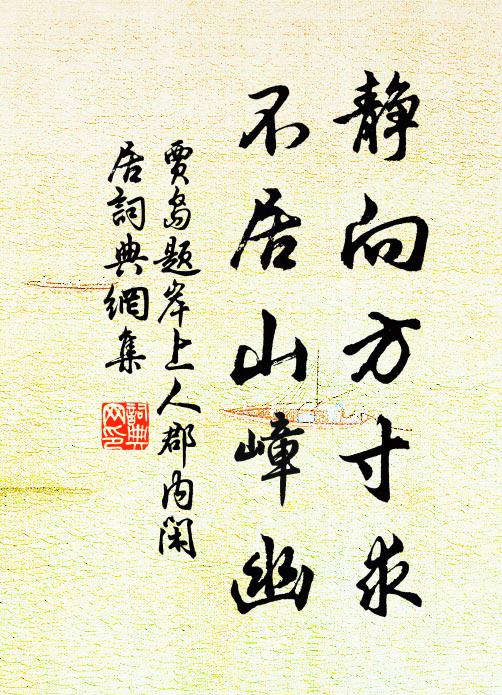 静向方寸求
不居山嶂幽
賈島题岸上人郡内闲
居詞典網集
詞典
网印